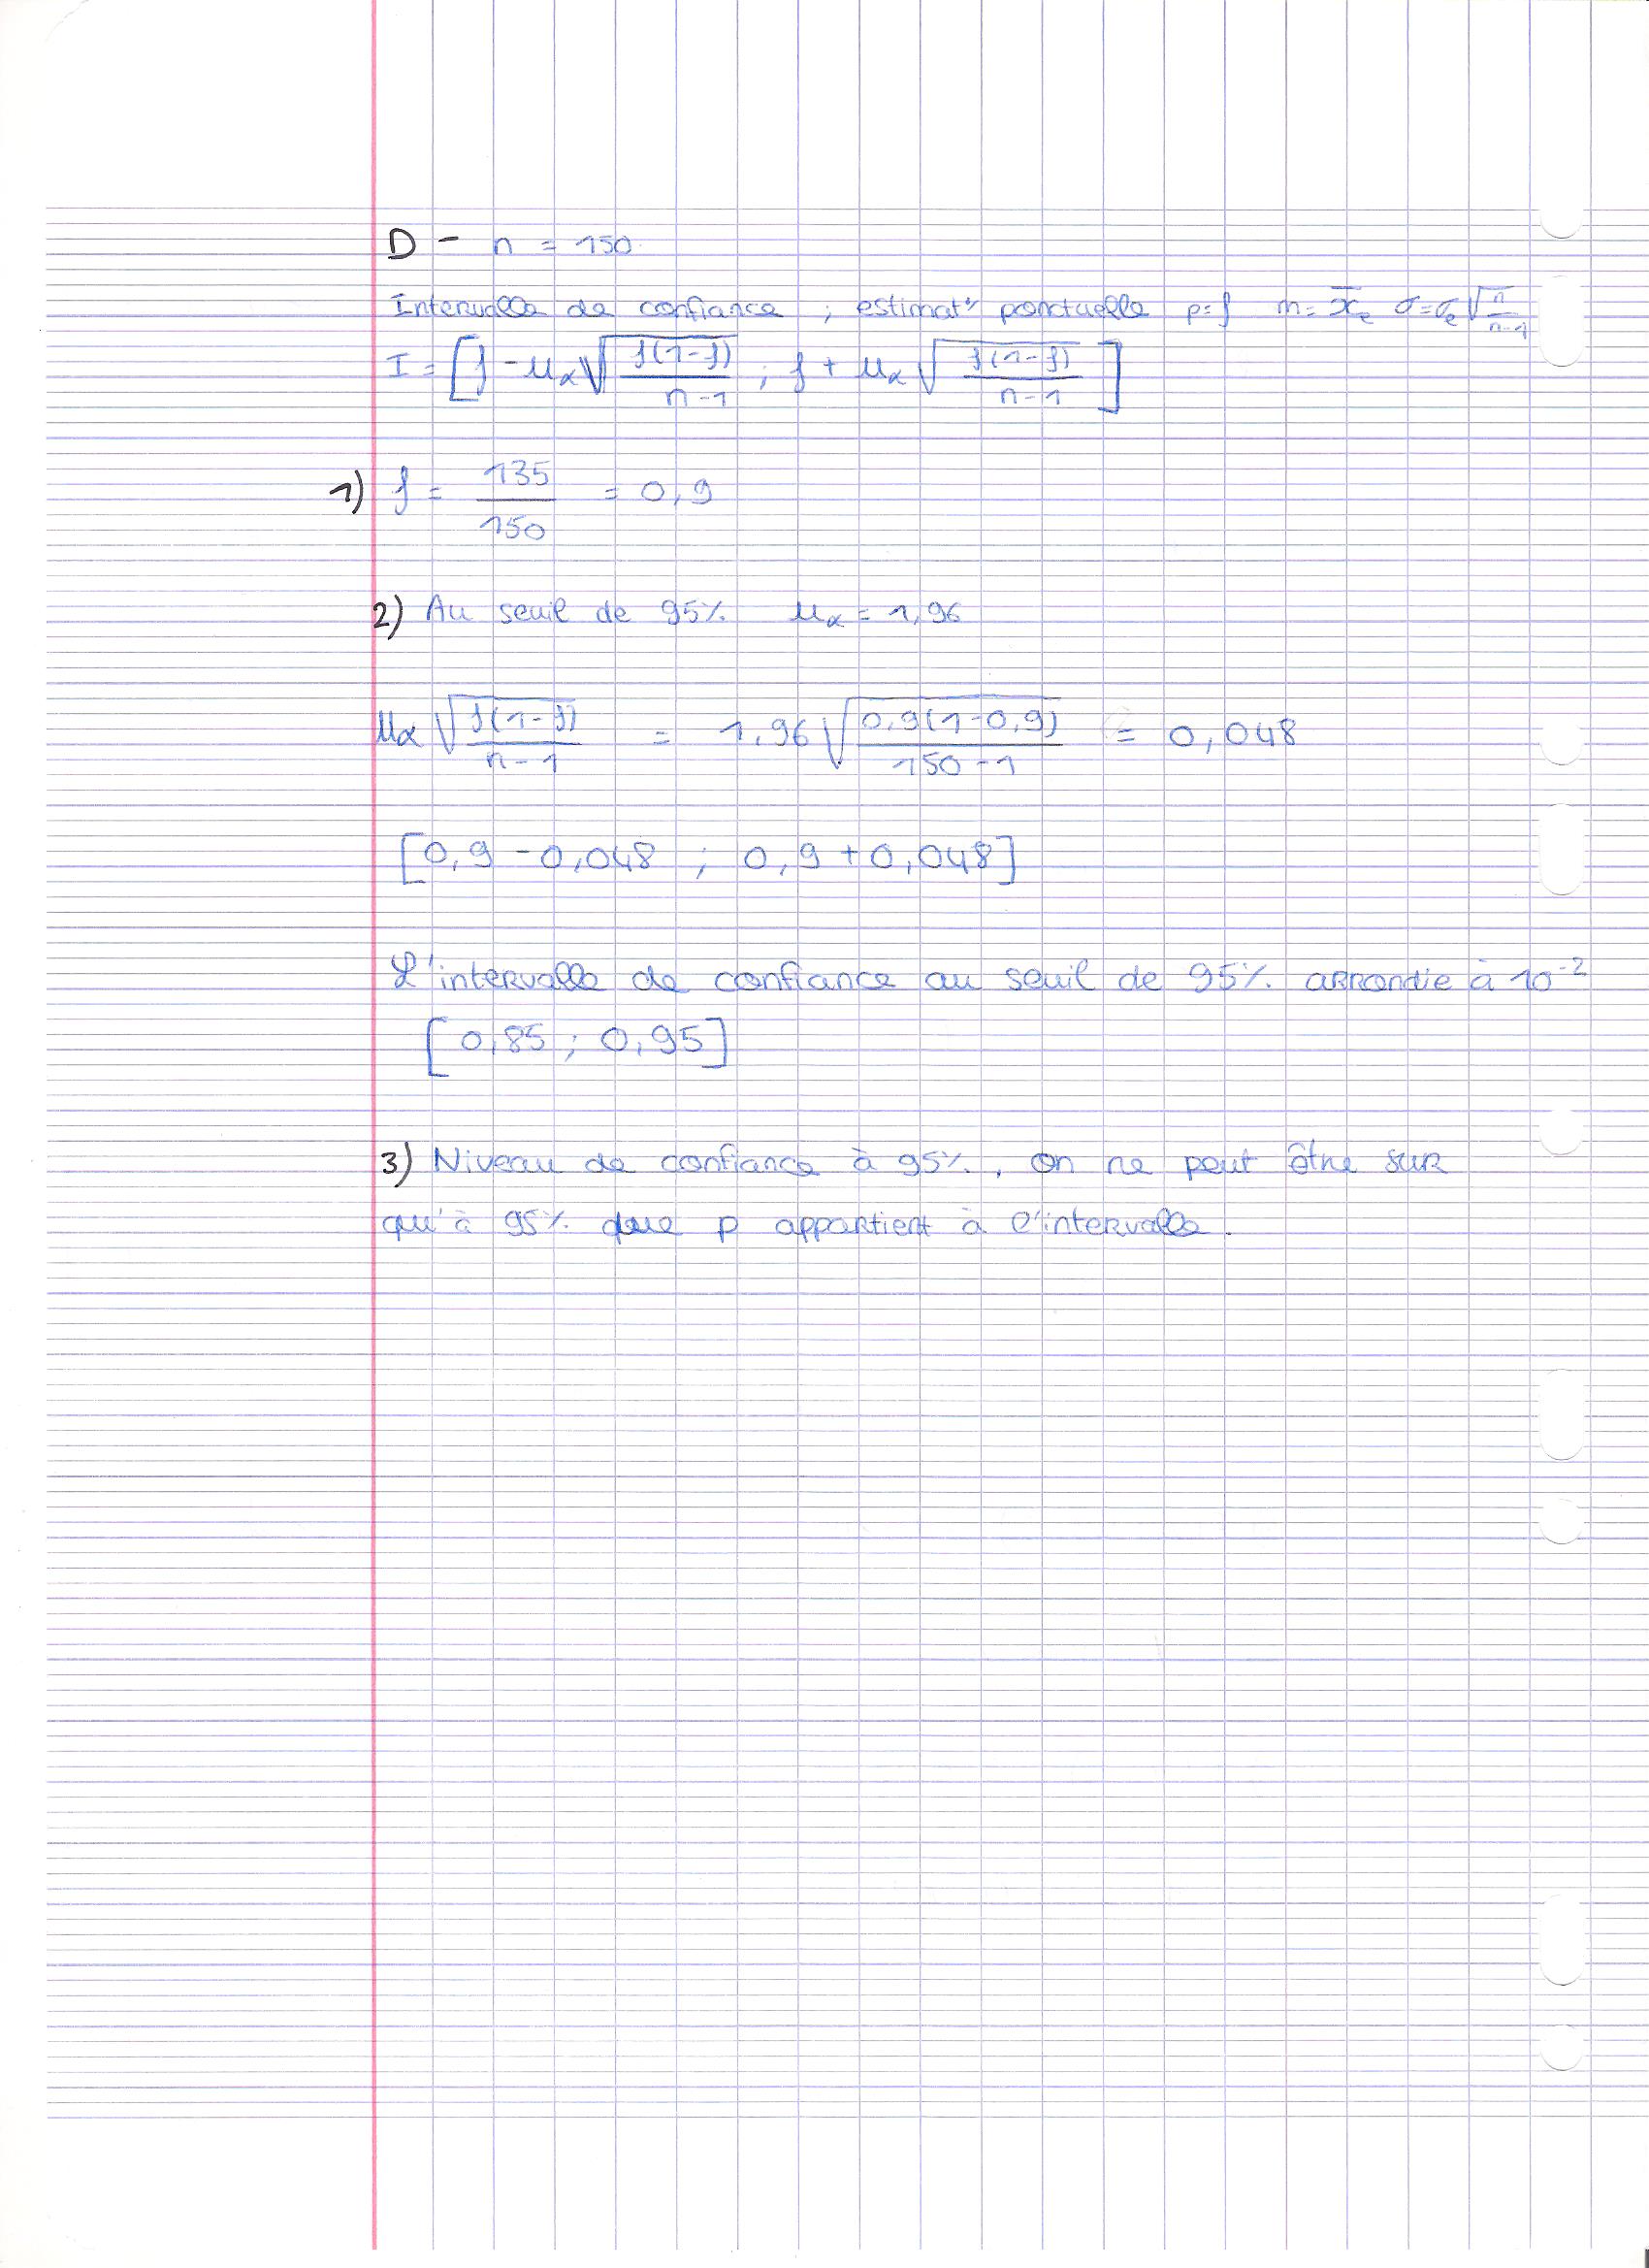 D - n = 150
Intervalle de confiance ; estimat° ponctuelle p=f m = x̄e σ=σe√(n/(n-1))
I = [f - uα√(f(1-f)/(n-1)) ; f + uα√(f(1-f)/(n-1))]
1) f = 135/150 = 0,9
2) Au seuil de 95% uα = 1,96
uα√(f(1-f)/(n-1)) = 1,96√(0,9(1-0,9)/(150-1)) = 0,048
[0,9 - 0,048 ; 0,9 + 0,048]
L'intervalle de confiance au seuil de 95% arrondie à 10⁻²
[0,85 ; 0,95]
3) Niveau de confiance à 95%, on ne peut être sur
qu'à 95% que p appartient à l'intervalle.